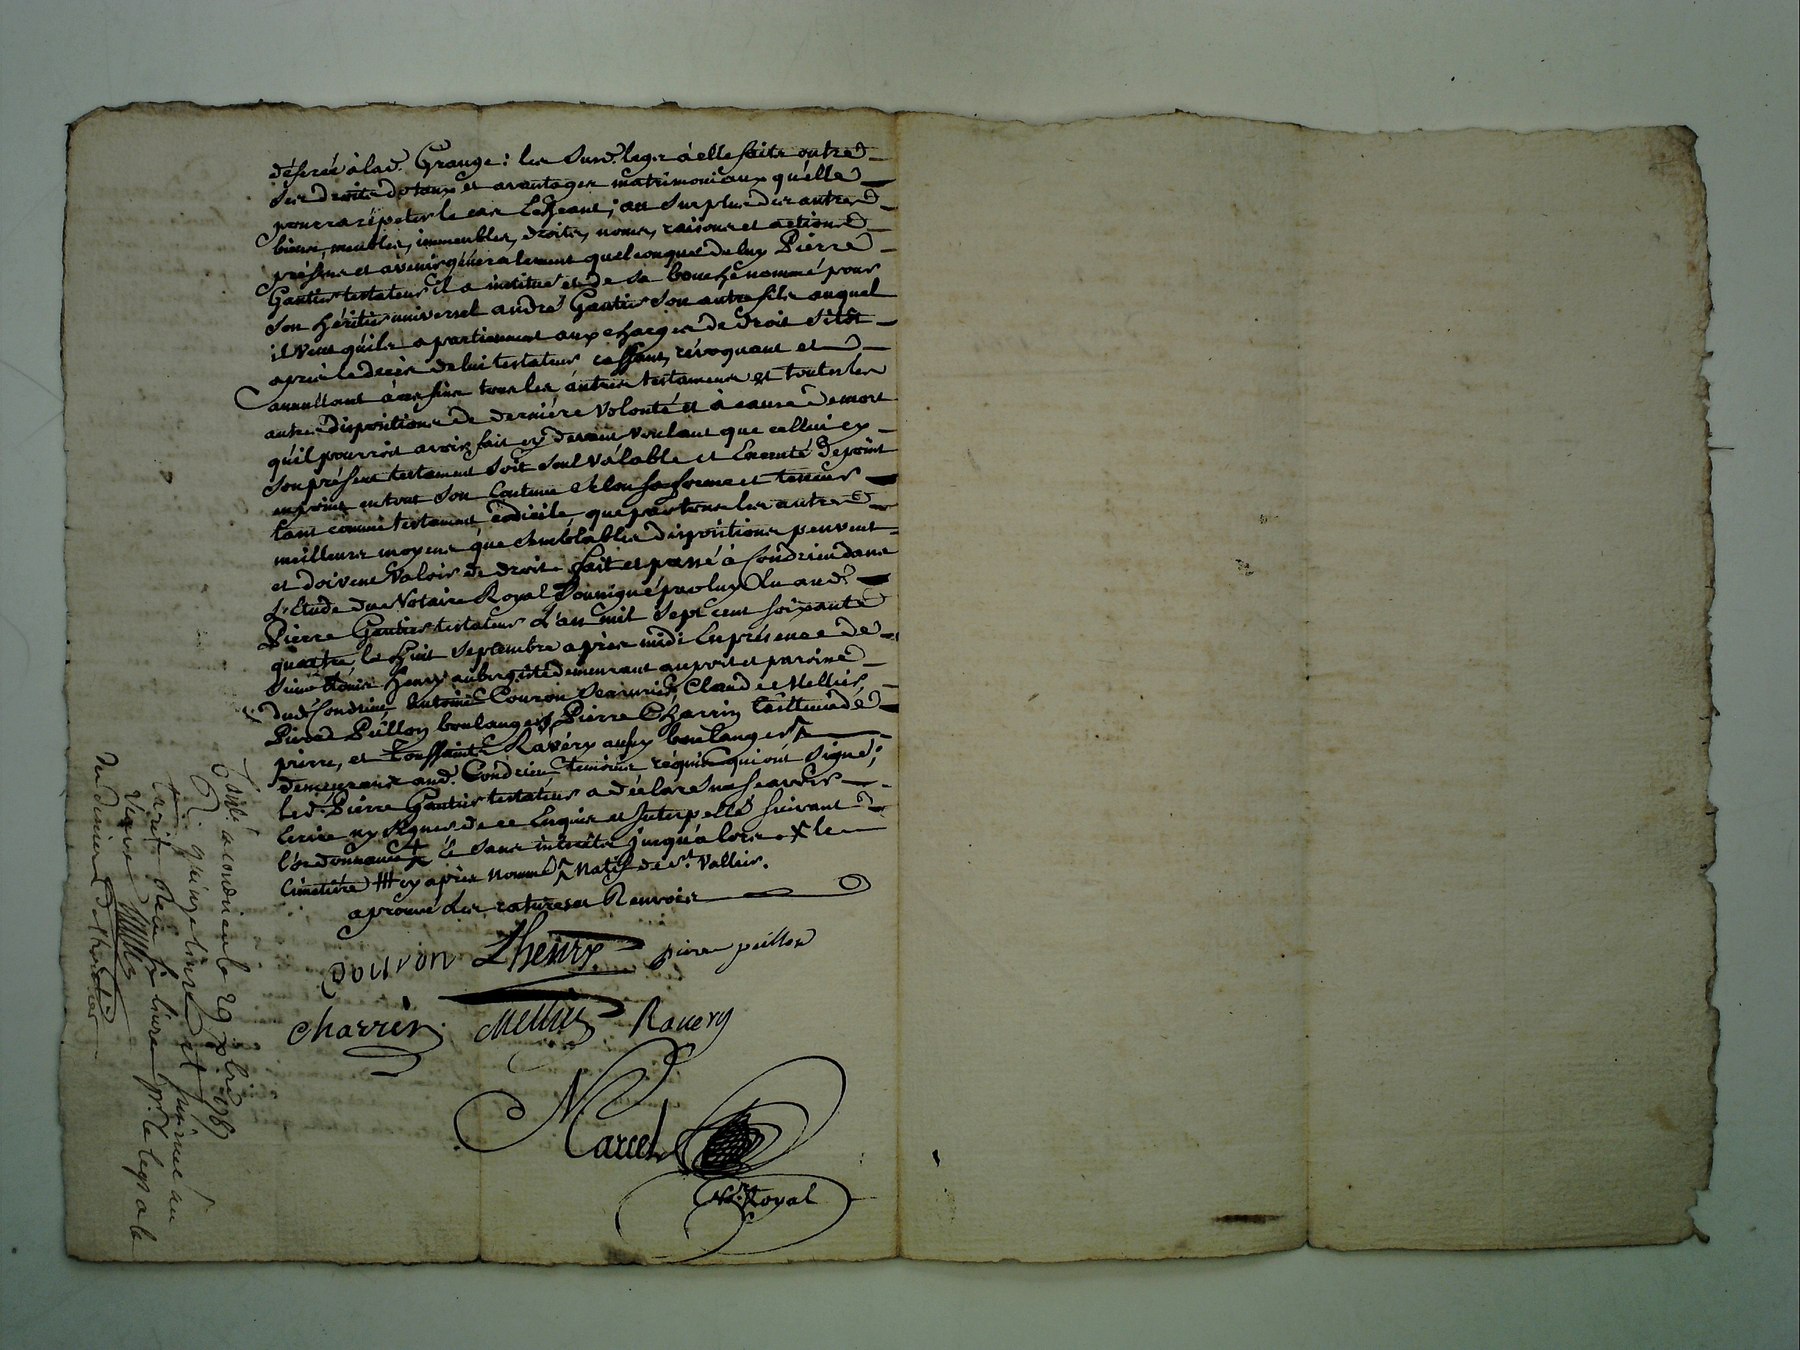 déferée à lad. Grange: les susd. legs à elle faits outre
ses droits dotaux et avantages matrimoniaux qu'elle
pourra répéter le cas échéant; au surplus des autres
biens, meubles, immeubles, droits, noms, raisons et actions
présens et avenir généralement quelconques de luy Pierre
Gautier testateur il a institué et de sa bouche nommé pour
son héritier universel andré Gautier son autre fils auquel
il veut qu'ils apartiennent aux charges de droit sitôt
après le décès de lui testateur cassant, révoquant et
annullant à ces fins tous les autres testamens et toutes les
autres dispositions de dernière volonté et à cause de mort
qu'il pourroit avoir fait cy devant voulant que cellui cy
son présent testament soit seul valable et Executé de point
en point en tout son contenu selon sa forme et teneur
tant comme testament, codicile que par tous les autres
meilleurs moyens que semblables dispositions peuvent
et doivent valoir de droit. fait et passé à Condrieu dans
l'Etude du Notaire Royal soussigné par luy lu aud.
Pierre Gautier testateur L'an mil sept cent soixante
quatre, le huit septembre après midi En présence de
Louis Henry aubergiste demeurant au port et paroisse
dud. Condrieu, Antoine Couron Claude Mellier,
Pierre Peillon boulanger, Pierre Charrin tailleur de
pierre, et Toussaint Ravery aussy boulanger
demeurants aud. Condrieu temoins requis qui ont signé;
led. Pierre Gautier testateur a déclaré ne scavoir
Ecrire ny signer de ce Enquis et Interpellé suivant
l'ordonnance sans interets jusqu'alors le
Cimetière cy après nommé natif de St. Vallier.
aprouvé les ratures et Renvois
couron Lhenry piere peillon
charrin Mellier Ravery
Marcel
Nre. Royal
Con.lé a condrieu le 29 7bre 1764
R. quinze livres et
livres pr. le legs a la